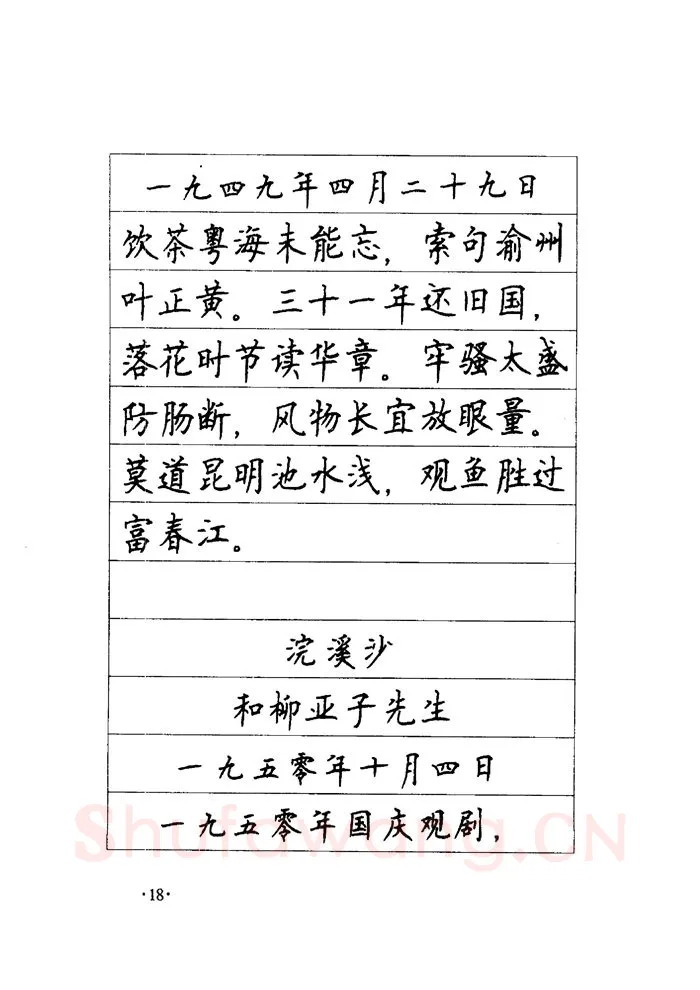 一九四九年四月二十九日
饮茶粤海未能忘，索句渝州
叶正黄。三十一年还旧国，
落花时节读华章。牢骚太盛
防肠断，风物长宜放眼量。
莫道昆明池水浅，观鱼胜过
富春江。
浣溪沙
和柳亚子先生
一九五零年十月四日
一九五零年国庆观剧，
Shufawang.CN
·18·